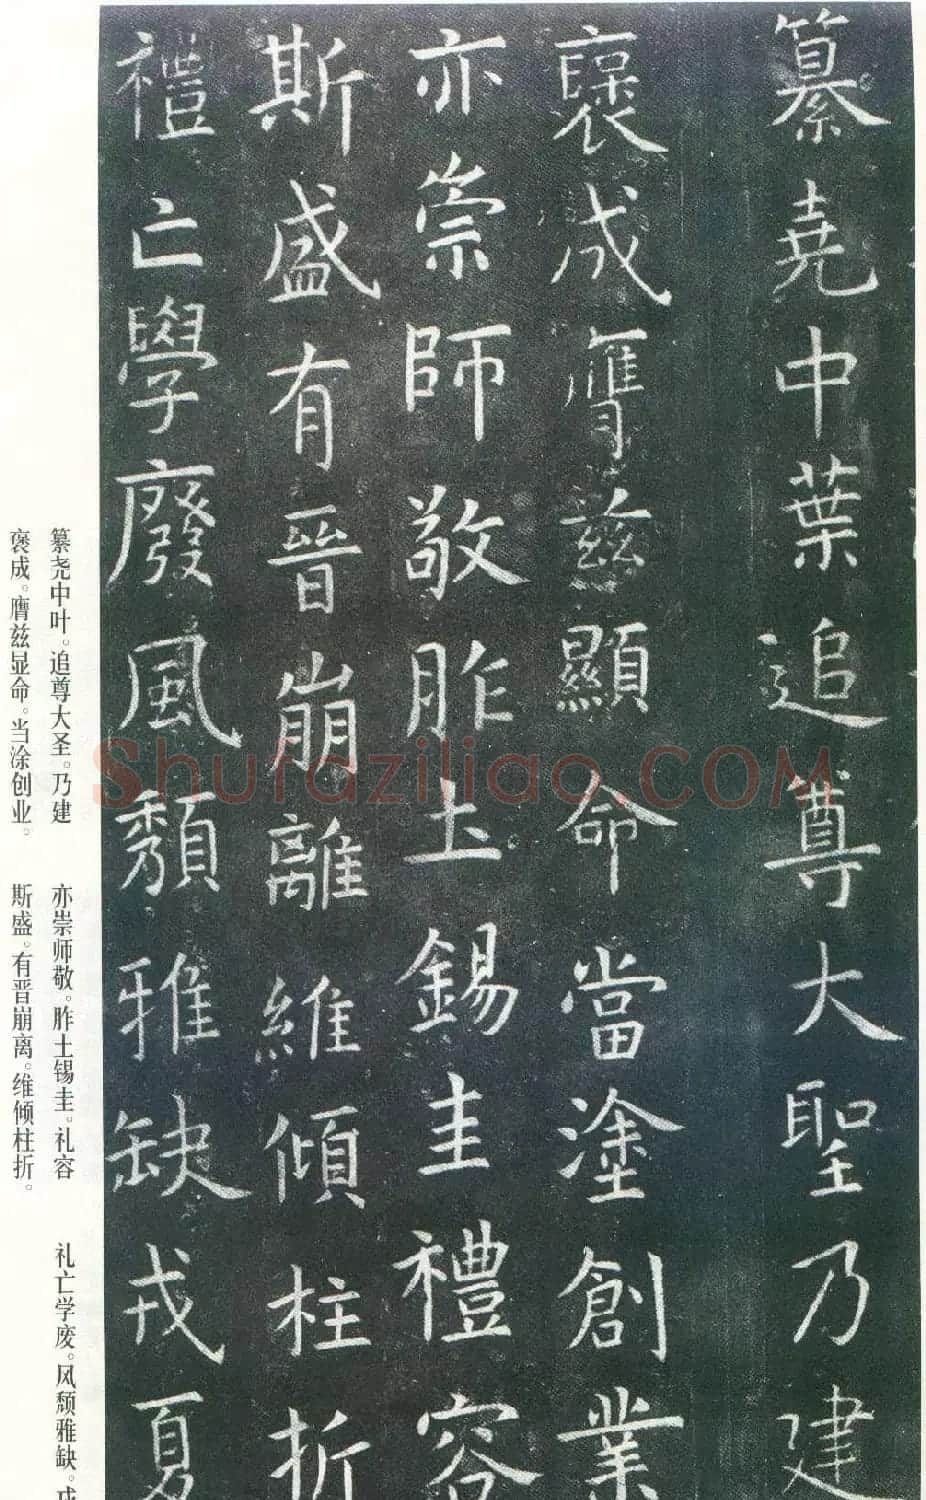 纂堯中葉追尊大聖乃建
褒成膺茲顯命當塗創業
亦崇師敬胙土錫圭禮容
斯盛有晉崩離維傾柱折
禮亡學廢風頹雅缺戎夏
纂尧中叶。追尊大圣。乃建
褒成。膺兹显命。当涂创业。
亦崇师敬。胙土锡圭。礼容
斯盛。有晋崩离。维倾柱折。
礼亡学废。风颓雅缺。戎
Shufaziliao.COM